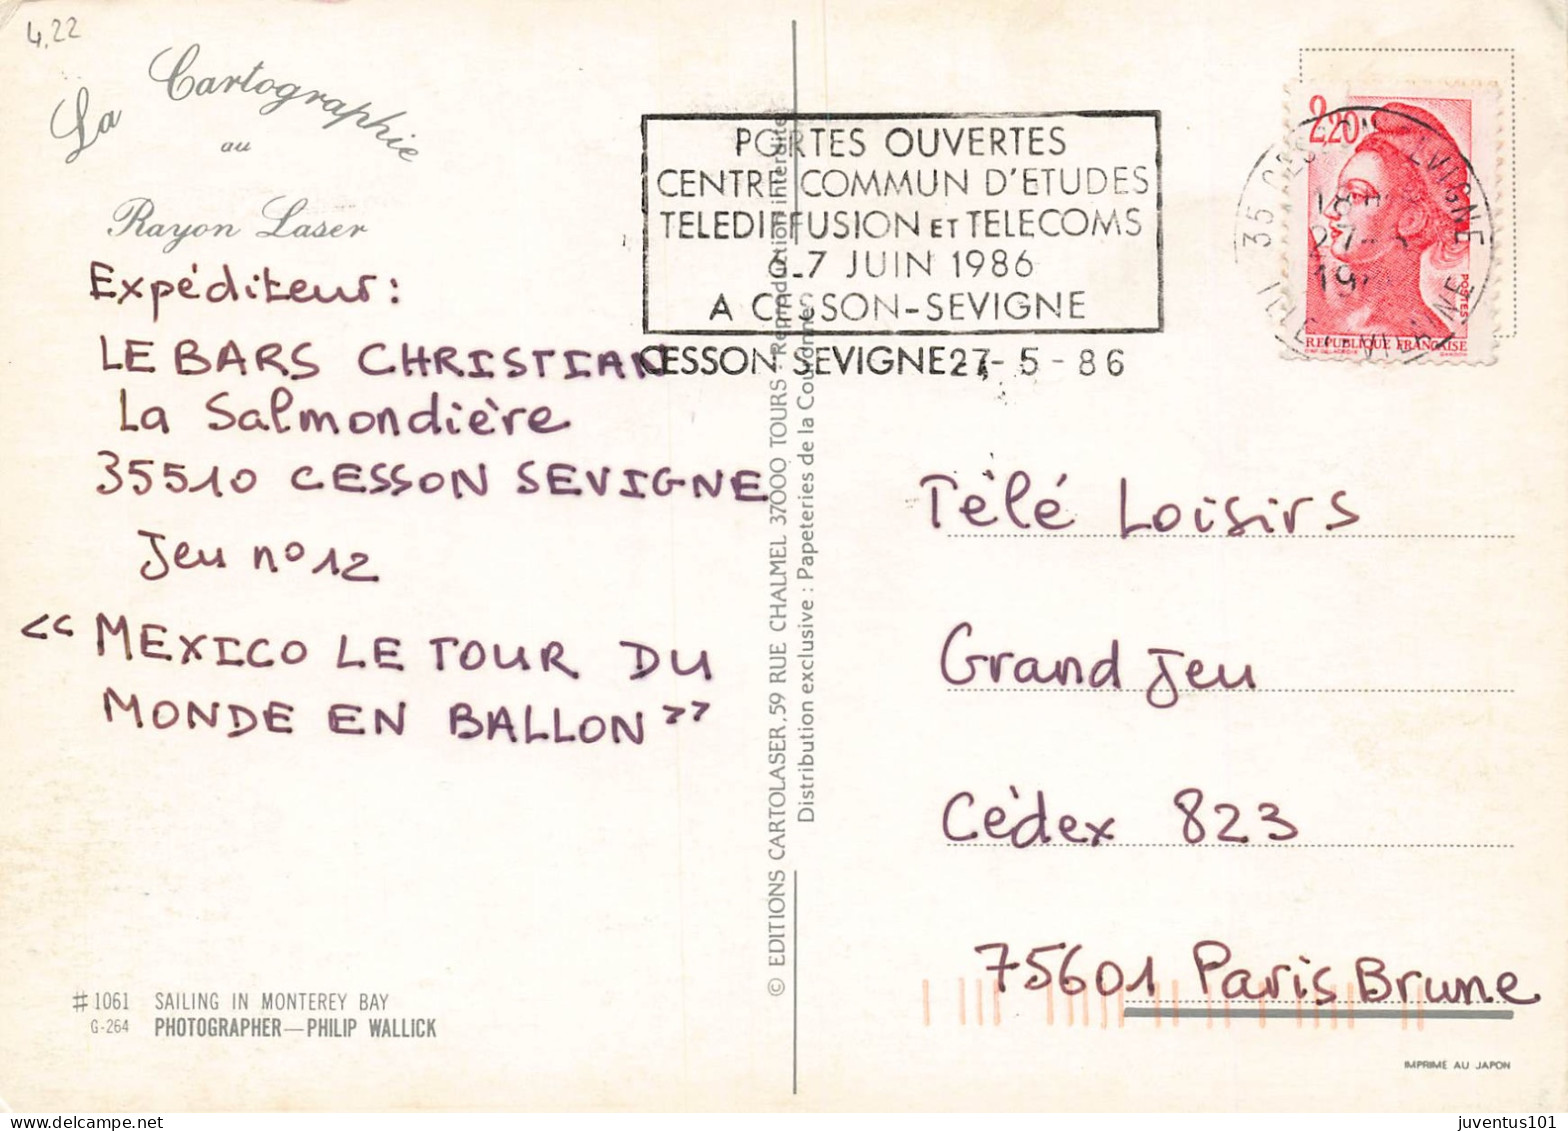 4,22
La Cartographie
au
Rayon Laser
Expéditeur:
LE BARS CHRISTIAN
La Salmondière
35510 CESSON SEVIGNE
Jeu n° 12
<< MEXICO LE TOUR DU
MONDE EN BALLON >>
#1061 SAILING IN MONTEREY BAY
G-264 PHOTOGRAPHER—PHILIP WALLICK
© EDITIONS CARTOLASER, 59 RUE CHALMEL 37000 TOURS - Reproduction interdite
Distribution exclusive : Papeteries de la Couronne
PORTES OUVERTES
CENTRE COMMUN D'ETUDES
TELEDIFFUSION ET TELECOMS
6-7 JUIN 1986
A CESSON-SEVIGNE
CESSON SEVIGNE 27-5-86
2,20
POSTES
REPUBLIQUE FRANÇAISE
35 CESSON SEVIGNE
ILLE ET VILAINE
Télé Loisirs
Grand Jeu
Cèdex 823
75601 Paris Brune
IMPRIMÉ AU JAPON
juventus101